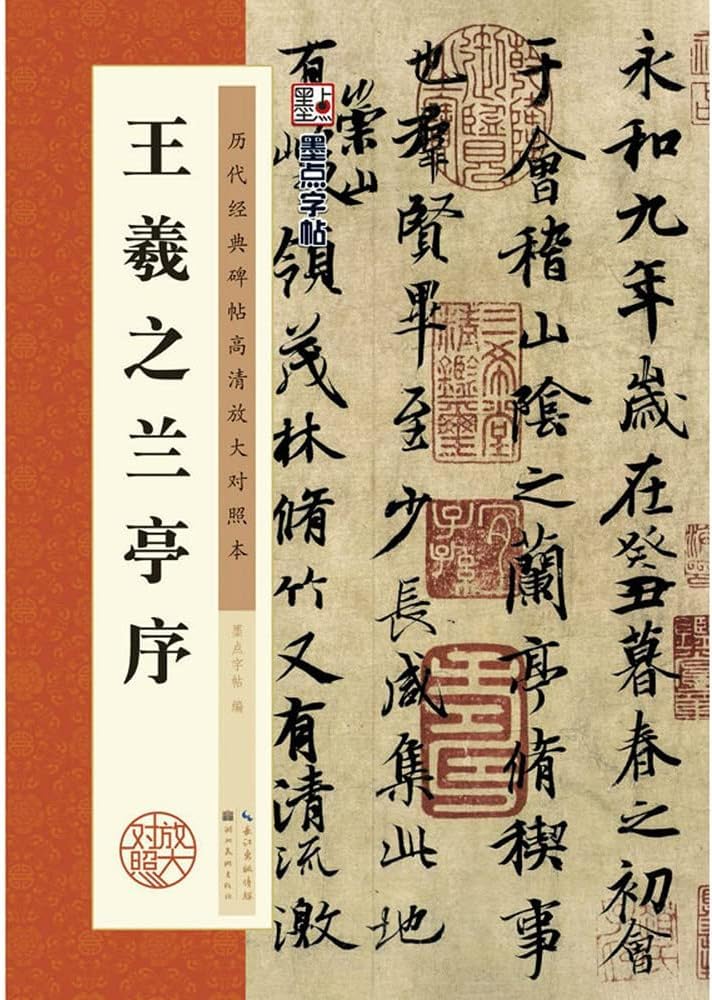 王羲之兰亭序
历代经典碑帖高清放大对照本
墨点字帖 编
放大对照
墨點
墨点字帖
永和九年歲在癸丑暮春之初會
于會稽山陰之蘭亭脩稧事
也羣賢畢至少長咸集此地
有崇山領茂林脩竹又有清流激
三希堂精鑑璽
宜子孫
湖北美术出版社
长江出版传媒